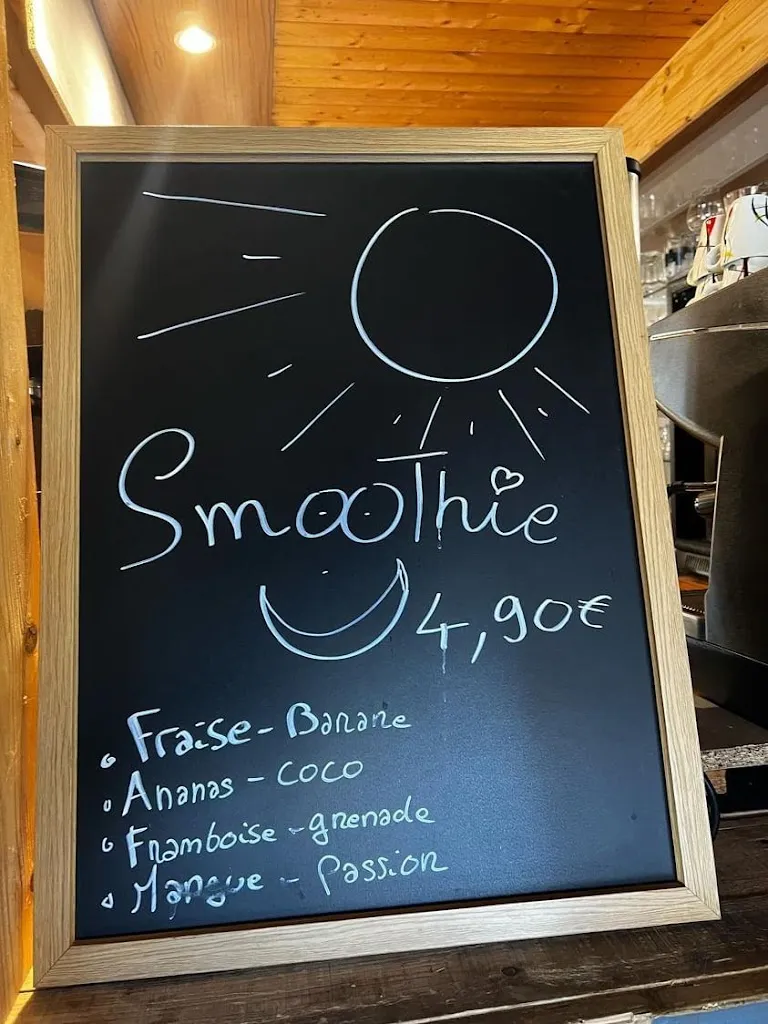 SmooThie
4,90€
Fraise - Banane
Ananas - coco
Framboise - grenade
Mangue - Passion